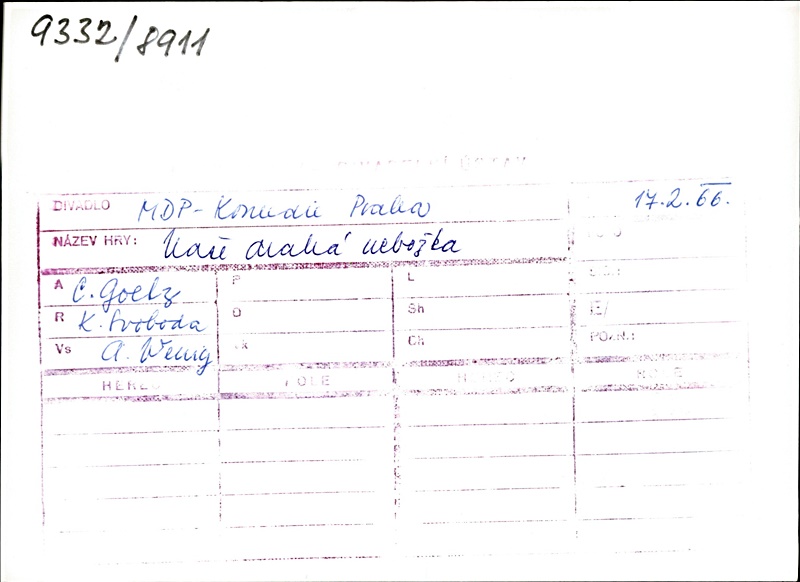 9332/8911
DIVADLO MDP-Komedie Praha 17.2.66.
NÁZEV HRY: Naše drahá nebožka
A C. Goetz P L
R K. Svoboda D Sh
Vs A. Wenig Ch
HEREC ROLE HEREC ROLE